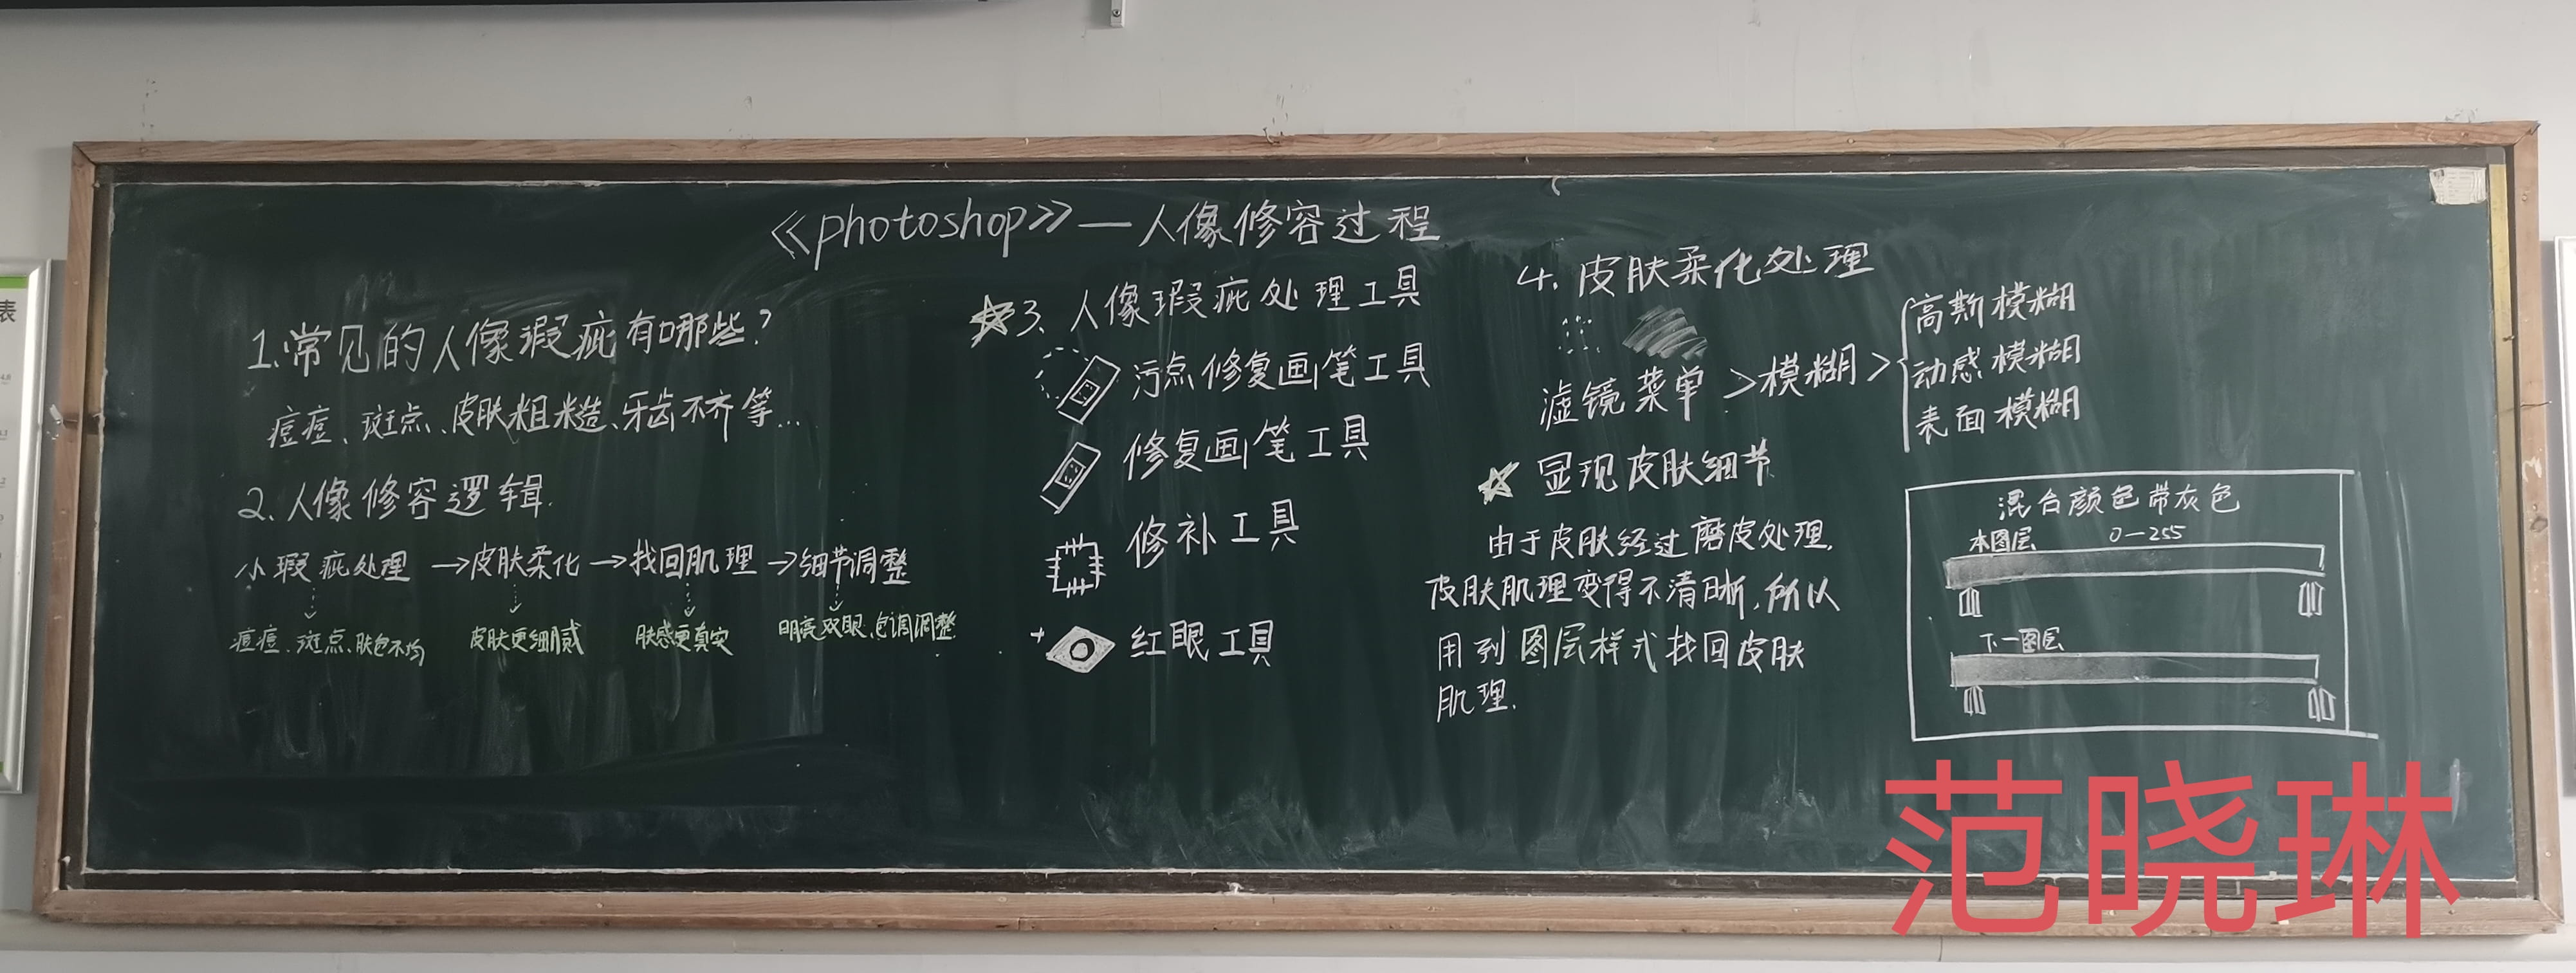 《photoshop》—人像修容过程
1.常见的人像瑕疵有哪些?
痘痘、斑点、皮肤粗糙、牙齿不齐等...
2.人像修容逻辑.
小瑕疵处理→皮肤柔化→找回肌理→细节调整
痘痘、斑点、肤色不均 皮肤更细腻 肤感更真实 明亮双眼、色调调整
3、人像瑕疵处理工具
污点修复画笔工具
修复画笔工具
修补工具
红眼工具
4.皮肤柔化处理
滤镜菜单>模糊>
高斯模糊
动感模糊
表面模糊
显现皮肤细节
由于皮肤经过磨皮处理,
皮肤肌理变得不清晰,所以
用到图层样式找回皮肤
肌理.
混合颜色带灰色
本图层 0—255
下一图层
范晓琳
表